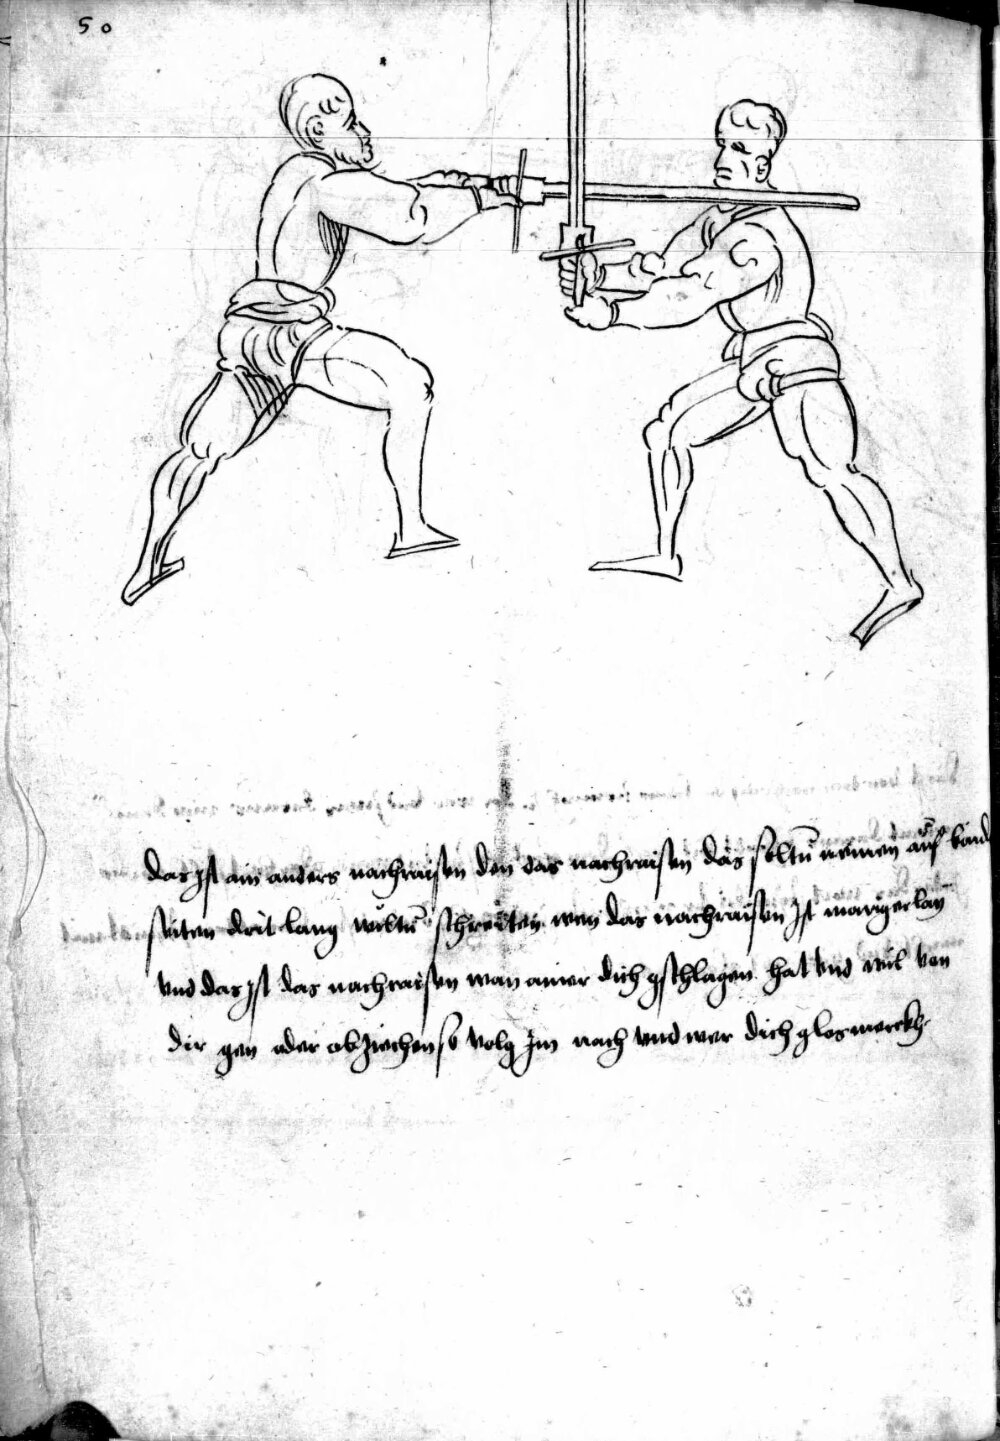 50
das ist ain anders nachraisen den das nachraisen das soltu nemen auf baid
seiten drit lang wiltu schreiten wen das nachraisen ist manigerlay
vnd das ist das nachraisen wan ainer dich gschlagen hat vnd wil von
dir gen oder abziechen so volg im nach vnd wer dich glos merckh